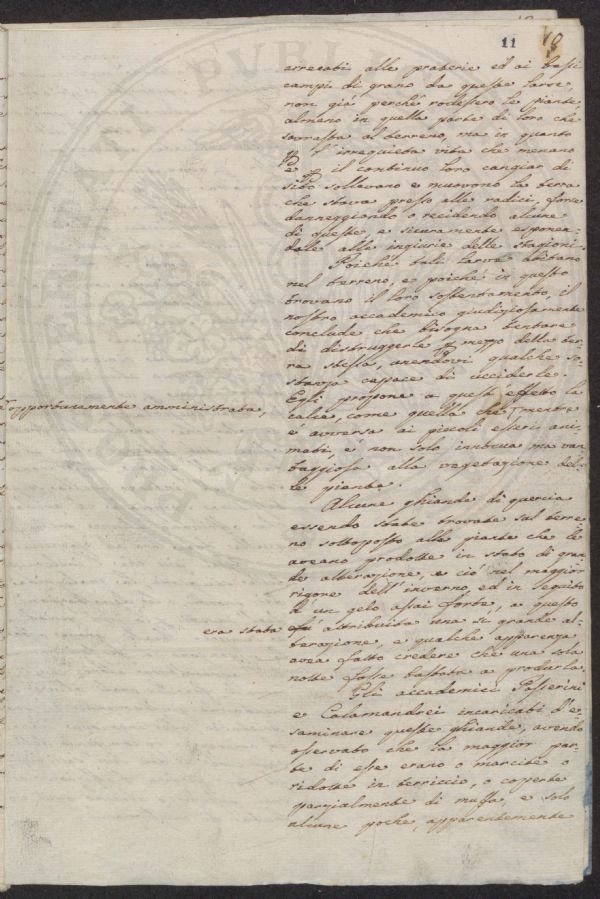 11
arrecati alle praterie ed ai bassi
campi di grano da queste larve,
non già perché rodessero le piante,
almeno in quella parte di loro che
sovrasta al terreno, ma in quanto
p l'irrequieta vita che menano
e p il continuo loro cangiar di
sito sollevano e muovono la terra
che stava presso alle radici, forse
danneggiando o recidendo alcune
di queste, e sicuramente esponen-
dole alle ingiurie delle stagioni.
Poiché tali larve abitano
nel terreno, e poiché in questo
trovano il loro sostentamento, il
nostro accademico giudiziosamente
conclude che bisogna tentare
di distruggerle p mezzo della ter-
ra stessa, avendovi qualche so-
stanza capace di ucciderle.
Egli propone a quest'effetto la
calce, come quella che mentre
opportunamente amministrata,
è avversa ai piccoli esseri ani-
mati, è non solo innocua ma van-
taggiosa alla vegetazione del-
le piante.
Alcune ghiande di quercia
essendo state trovate sul terre-
no sottoposto alle piante che le
aveano prodotte in stato di gran-
de alterazione, e ciò nel maggior
rigore dell'inverno, ed in seguito
d'un gelo assai forte, a questo
era stata fu attribuita una sì grande al-
terazione, e qualche apparenza
avea fatto credere che una sola
notte fosse bastata a produrla.
Gli accademici Passerini
e Calamandrei incaricati d'e-
saminare queste ghiande, avendo
osservato che la maggior par-
te di esse erano o marcite o
ridotte in terriccio, o coperte
parzialmente di muffa, e solo
alcune poche, apparentemente